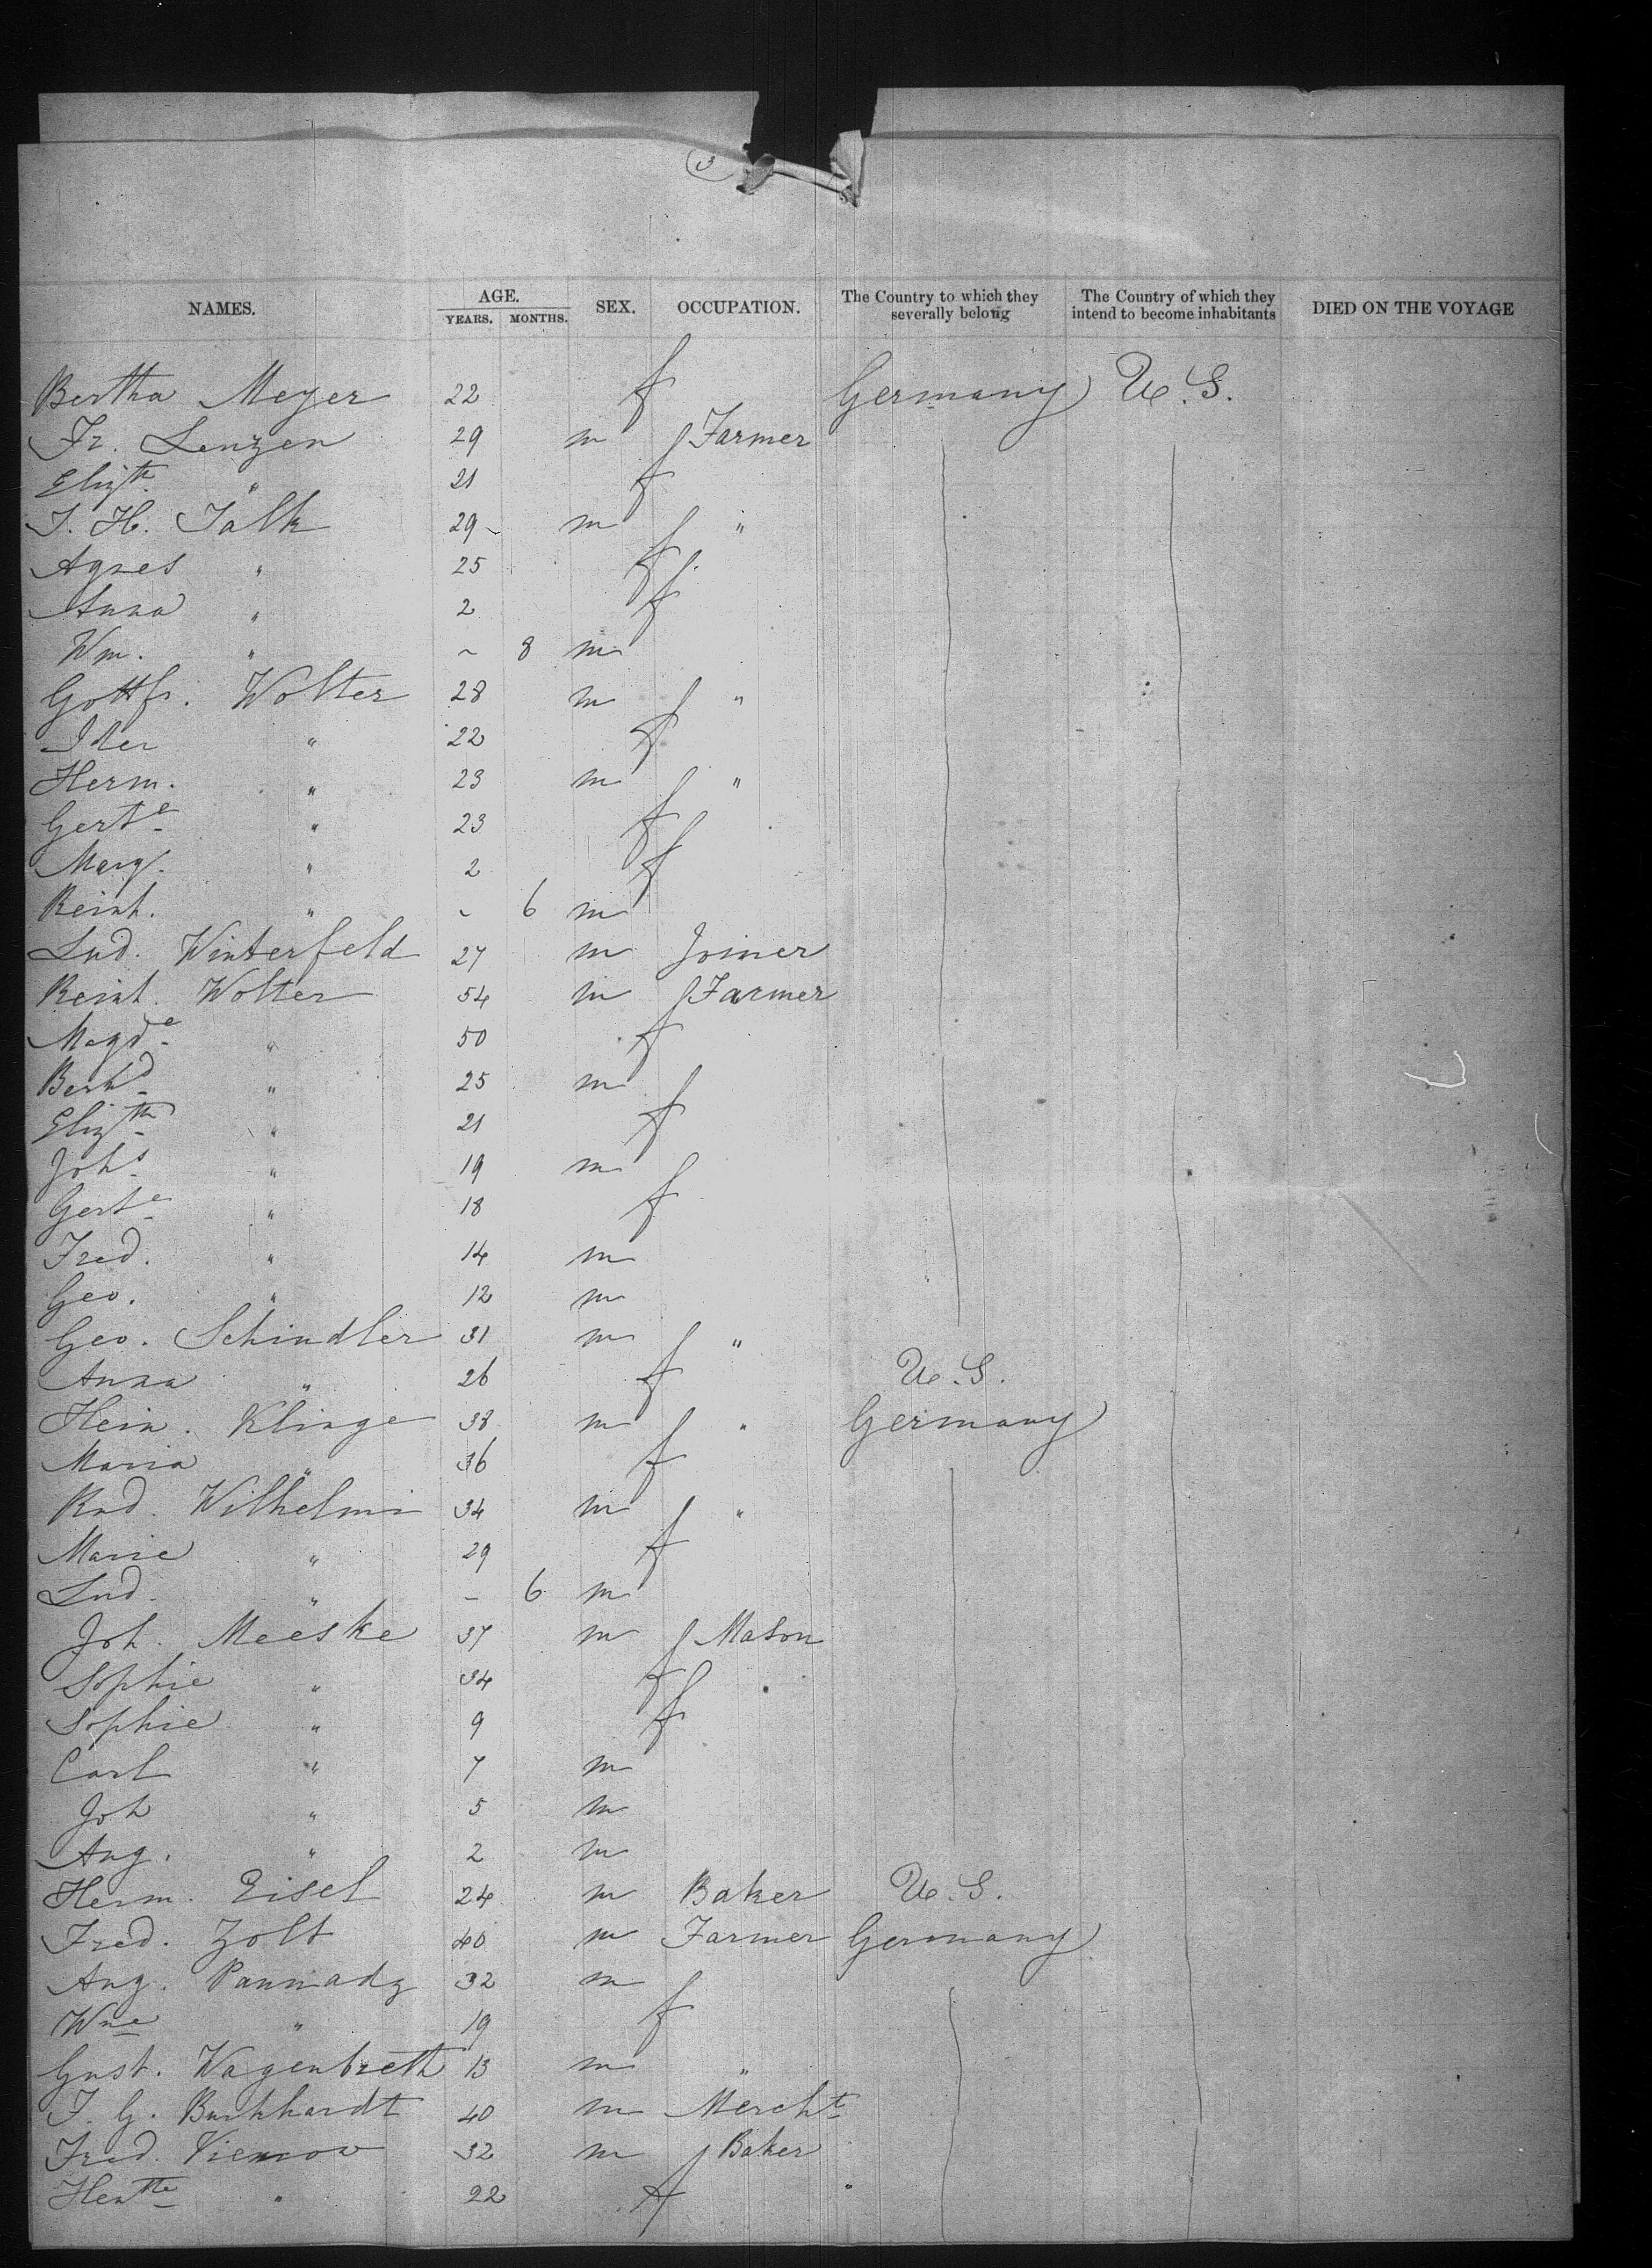 3
NAMES. AGE. SEX. OCCUPATION. The Country to which they severally belong The Country of which they intend to become inhabitants DIED ON THE VOYAGE
YEARS. MONTHS.
Bertha Meyer 22 f Germany U.S.
Fr. Lenzen 29 m Farmer
Elizth " 21 f
J. H. Jalk 29 - m "
Agnes " 25 f
Anna " 2 f
Wm. " ~ 8 m
Gottfr. Wolter 28 m "
" 22 f
Herm. " 23 m "
Gerte " 23 f
Marg. " 2 f
Reinh. " ~ 6 m
Lud. Winterfeld 27 m Joiner
Reinh. Wolter 54 m Farmer
Magde " 50 f
Bernhd " 25 m
Elizth " 21 f
Johs " 19 m
Gerte " 18 f
Fred. " 14 m
Geo. " 12 m
Geo. Schindler 31 m "
Anna " 26 f U.S.
Hein. Klinge 38 m " Germany
Maria " 36 f
Rud. Wilhelmi 34 m "
Marie " 29 f
Lud. " - 6 m
Joh. Meeske 37 m Mason
Sophie " 34 f
Sophie " 9 f
Carl " 7 m
Joh " 5 m
Aug. " 2 m
Herm. Eisel 24 m Baker U.S.
Fred. Zolt 40 m Farmer Germany
Aug. Pannadz 32 m
Wme " 19 f
Gust. Wagenbreth 13 m "
J. G. Burkhardt 40 m Mercht
Fred. Viemow 32 m Baker
Hentte " 22 f "